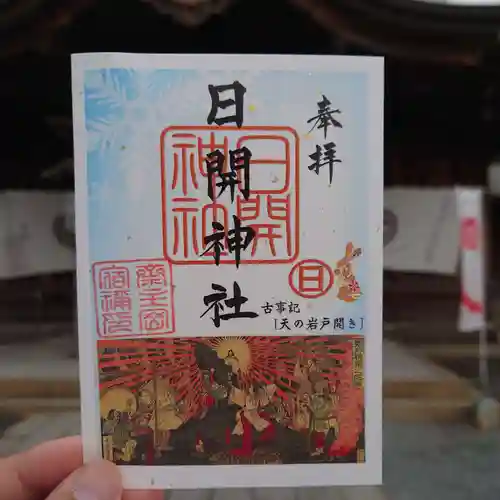 奉拝
日開神社
日開
神社
日
古事記
「天の岩戸開き」